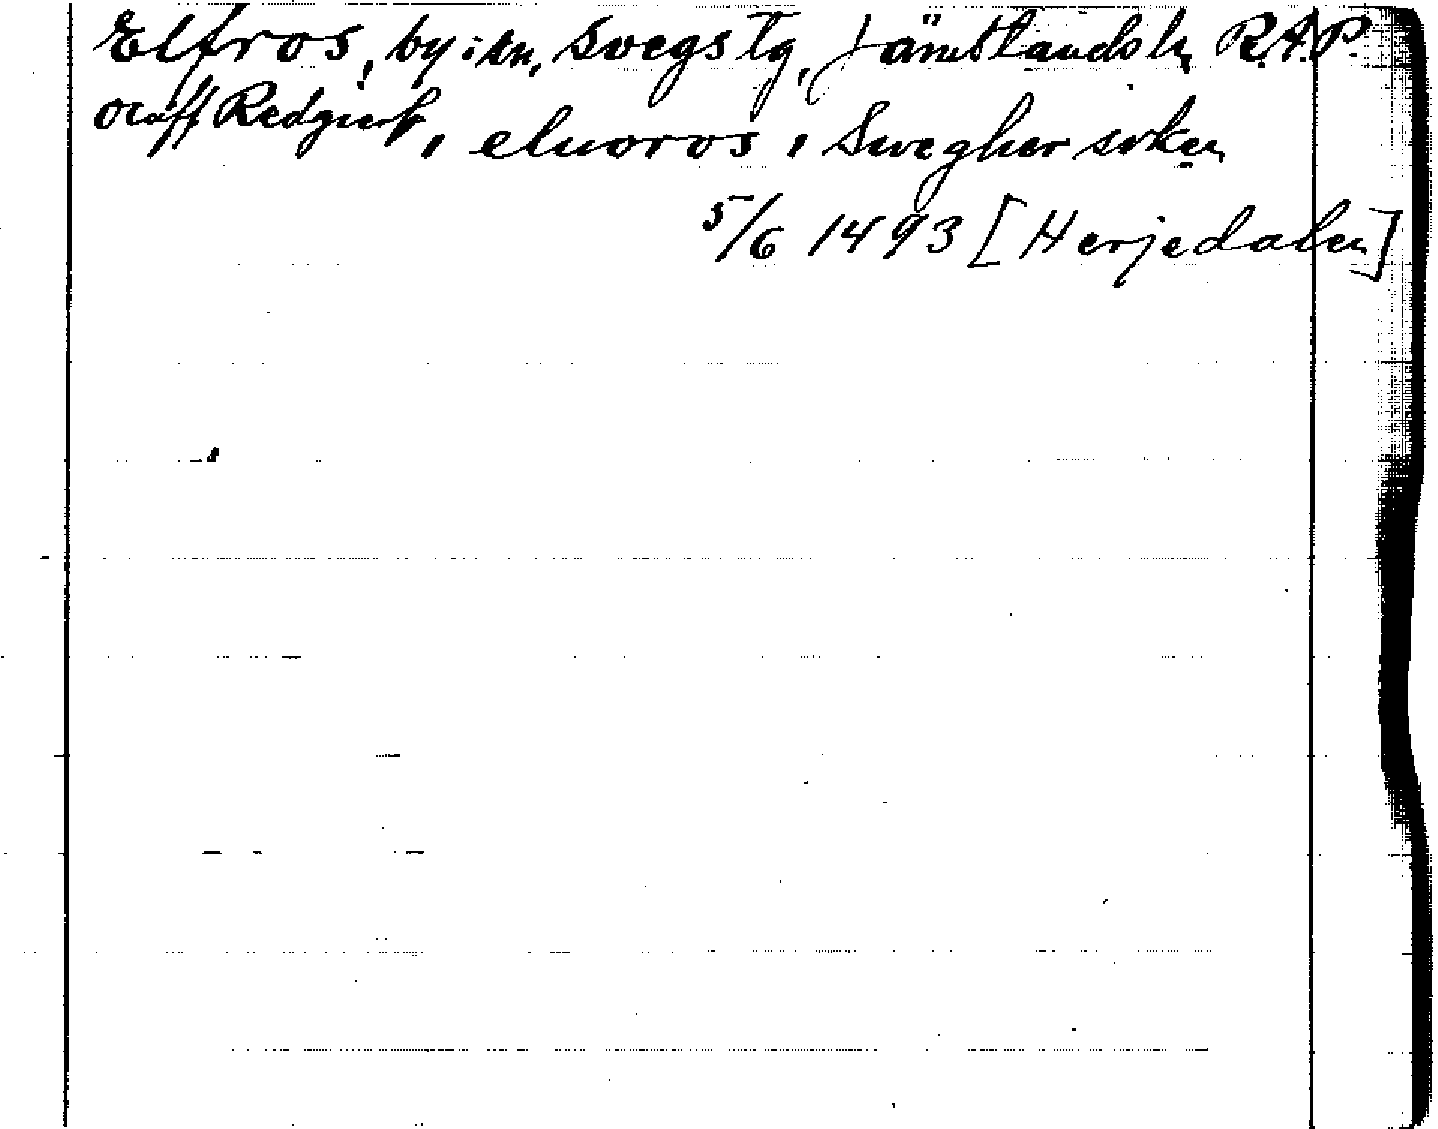 Elfros, by i sn, Svegs tg, Jämtlands l. R.A.P.
Olaff Redgierk, eluoros, Swegher soken
5/6 1493 [Herjedalen]